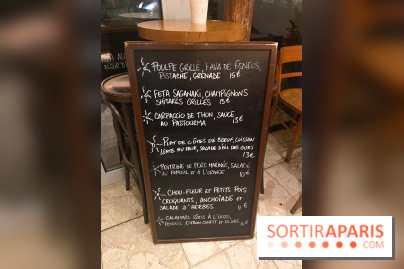 POULPE GRILLÉ, FAVA DE FENEUS,
PISTACHE, GRENADE 15€
FETA SAGANAKI, CHAMPIGNONS
SHITAKES GRILLÉS 13€
CARPACCIO DE THON, SAUCE
AU PASTOURMA 13€
PLAT DE CÔTES DE BOEUF, CUISSON
LENTE AU FOUR, SALADE D'
13€
POITRINE DE PORC MARINÉE, SALADE
AU FENOUIL ET À L'ORANGE 10€
CHOU-FLEUR ET PETITS POIS
CROQUANTS, ANCHOÏADE ET
SALADE D'HERBES
CALAMARS RÔTIS À L'OUZO,
FENOUIL, CITRON CONFIT ET OLIVES
SORTIRAPARIS
.COM